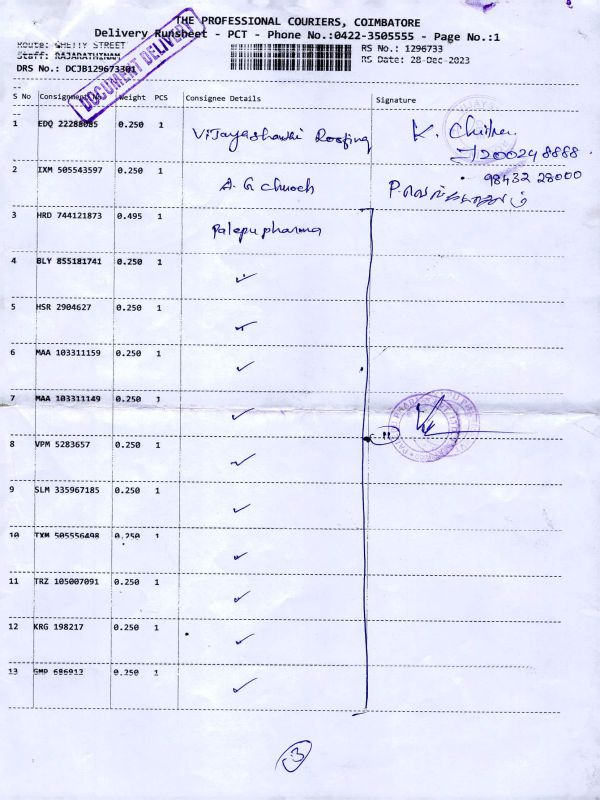 THE PROFESSIONAL COURIERS, COIMBATORE
Delivery Runsheet - PCT - Phone No.:0422-3505555 - Page No.:1
Route: GHETTY STREET
RS No.: 1296733
Staff: RAJARATHINAM
RS Date: 28-Dec-2023
DRS No.: DCJB129673301
DOCUMENT DELIVERY
S No Consignment Weight PCS Consignee Details Signature
1 EDQ 22288085 0.250 1 Vijayashanthi Roofing K.
7200248888
98432 28000
2 IXM 505543597 0.250 1 A.G church
3 HRD 744121873 0.495 1 Palepu pharma
4 BLY 855181741 0.250 1 ✓
5 HSR 2904627 0.250 1 ✓
6 MAA 103311159 0.250 1 ✓
7 MAA 103311149 0.250 1 ✓
11
8 VPM 5283657 0.250 1 ✓
9 SLM 335967185 0.250 1 ✓
10 TXM 505556498 0.250 1 ✓
11 TRZ 105007091 0.250 1 ✓
12 KRG 198217 0.250 1 ✓
13 GMP 686912 0.250 1 ✓